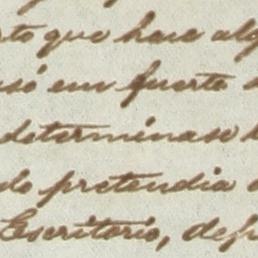 rto que hace alg
usó em fuerte
determinase
do pretendia
Escritorio, def